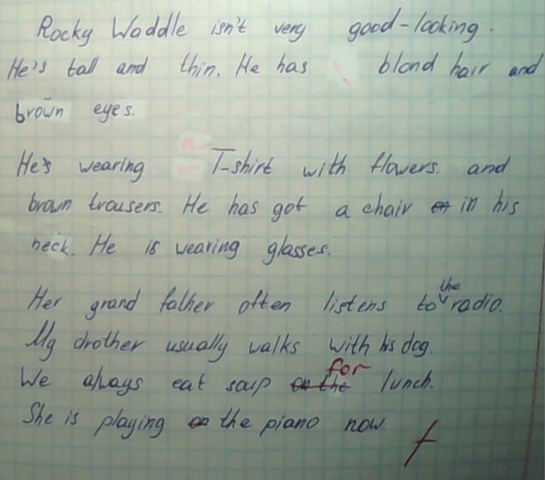 Rocky Waddle isn't very good-looking.
He's tall and thin. He has blond hair and
brown eyes.
He's wearing a T-shirt with flowers. and
brown trousers. He has got a chair on in his
neck. He is wearing glasses.
Her grand father often listens to the radio.
My drother usually walks with his dog.
We always eat soup on the for lunch.
She is playing on the piano now.